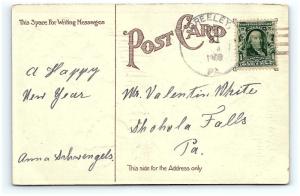 This Space for Writing Messages
POST CARD
GREELEY
1908
PA.
A Happy
New Year
Anna Schwengels.
Mr. Valentin White
Shohola Falls
Pa.
This side for the Address only